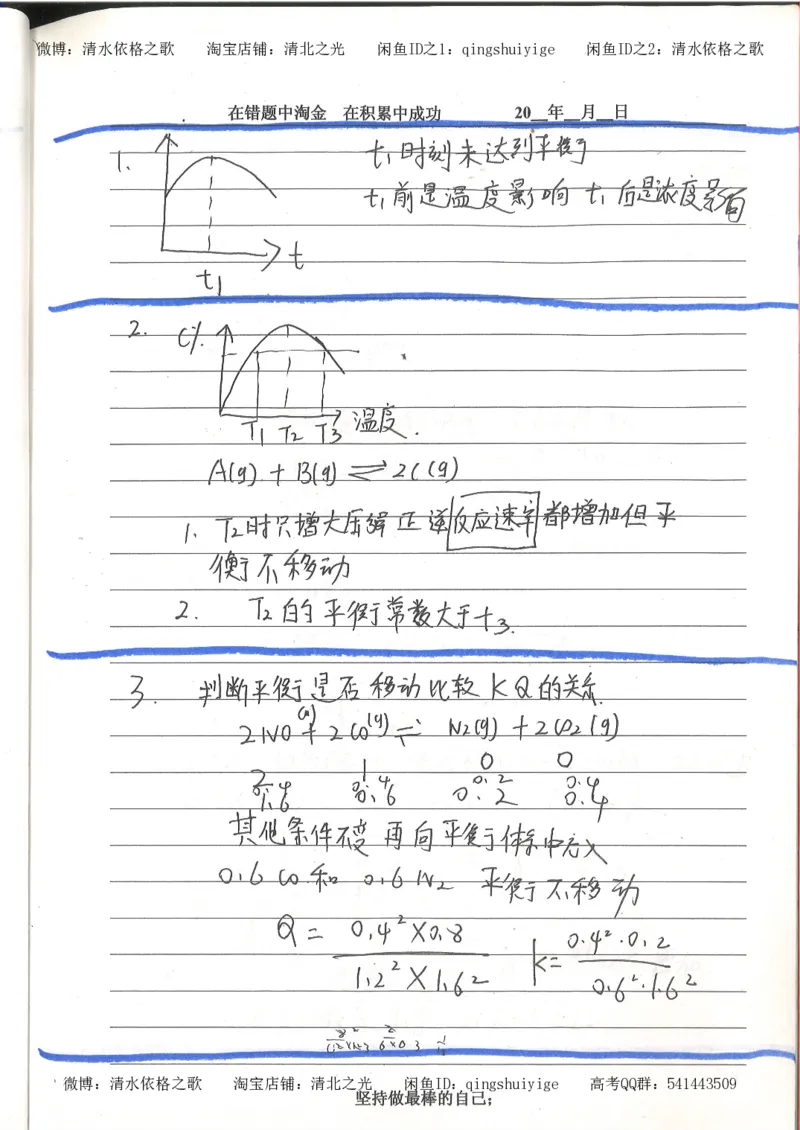 微博：清水依格之歌 淘宝店铺：清北之光 闲鱼ID之1：qingshuiyige 闲鱼ID之2：清水依格之歌
在错题中淘金 在积累中成功 20__年__月__日
1.
t₁时刻未达到平衡
t₁前是温度影响 t₁后是浓度影响
t
t₁
2.
C%
T₁ T₂ T₃ 温度.
A(g) + B(g) ⇌ 2C(g)
1. T₂时只增大压强 正逆反应速率都增加但平
衡不移动
2. T₂的平衡常数大于t₃.
3. 判断平衡是否移动比较K Q的关系.
2NO(g) + 2CO(g) ⇌ N₂(g) + 2CO₂(g)
2 1 0 0
0.4 0.4 0.2 0.4
1.6 0.6 0.2 0.4
其他条件不变 再向平衡体系中充入
0.6 CO 和 0.6 N₂ 平衡不移动
Q = 0.4² × 0.8
1.2² × 1.6²
K = 0.4² · 0.2
0.6² · 1.6²
微博：清水依格之歌 淘宝店铺：清北之光 闲鱼ID：qingshuiyige 高考QQ群：541443509
坚持做最棒的自己；